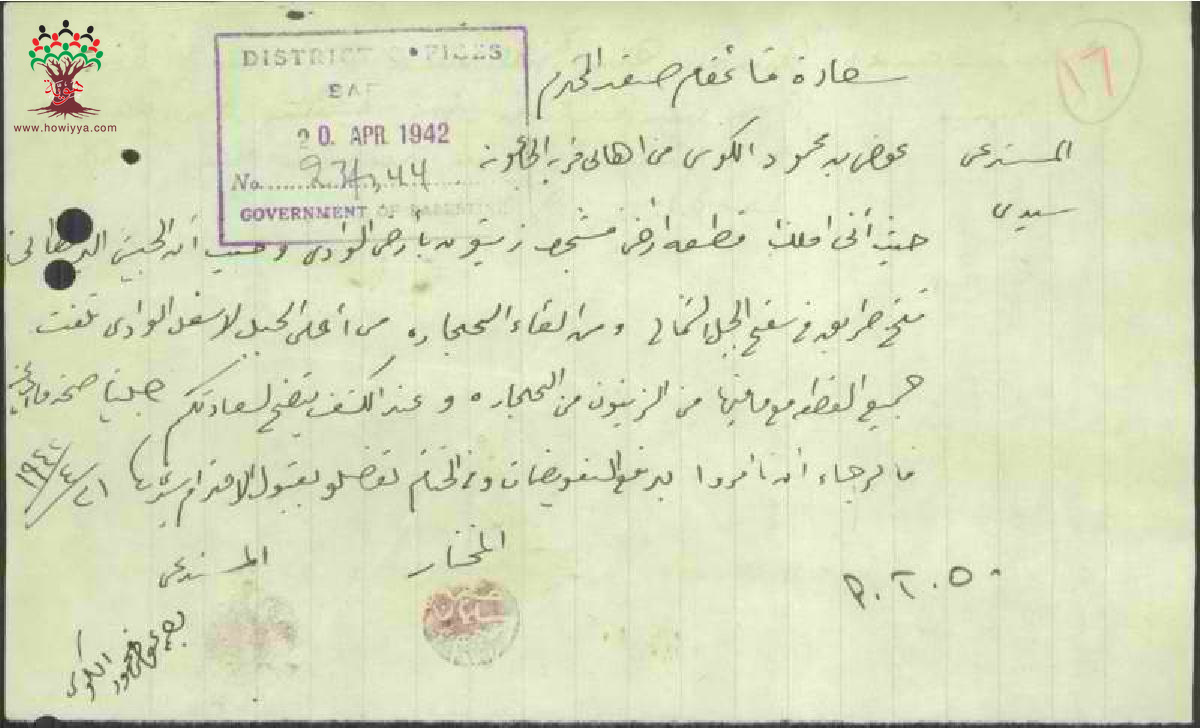 هوية
www.howiyya.com
DISTRICT OFFICES
SAF
20. APR 1942
No. 234,44
GOVERNMENT OF PALESTINE
١٦
سعادة قائمقام صفد المحترم
المستدعي عوض محمود الكوسى من اهالي قرية الجاعونة
سيدي
حيث أني املك قطعة ارض مشجرة زيتون بأرض الوادي وحيث أن الجيش البريطاني
فتح طريق في سفح الجبل الشمالي ومن القاء الحجاره من أعلى الجبل لاسفل الوادي تلفت
جميع القطعه مع ما فيها من الزيتون من الحجاره وعند الكشف يتضح لسعادتكم جلياً صحة
فالرجاء ان تامروا بدفع التعويضات وفي الختام تفضلو بقبول الاحترام سيدي
٢١/٤/١٩٤٢
المختار
المستدعي
عوض محمود الكوسى
P.T.O.